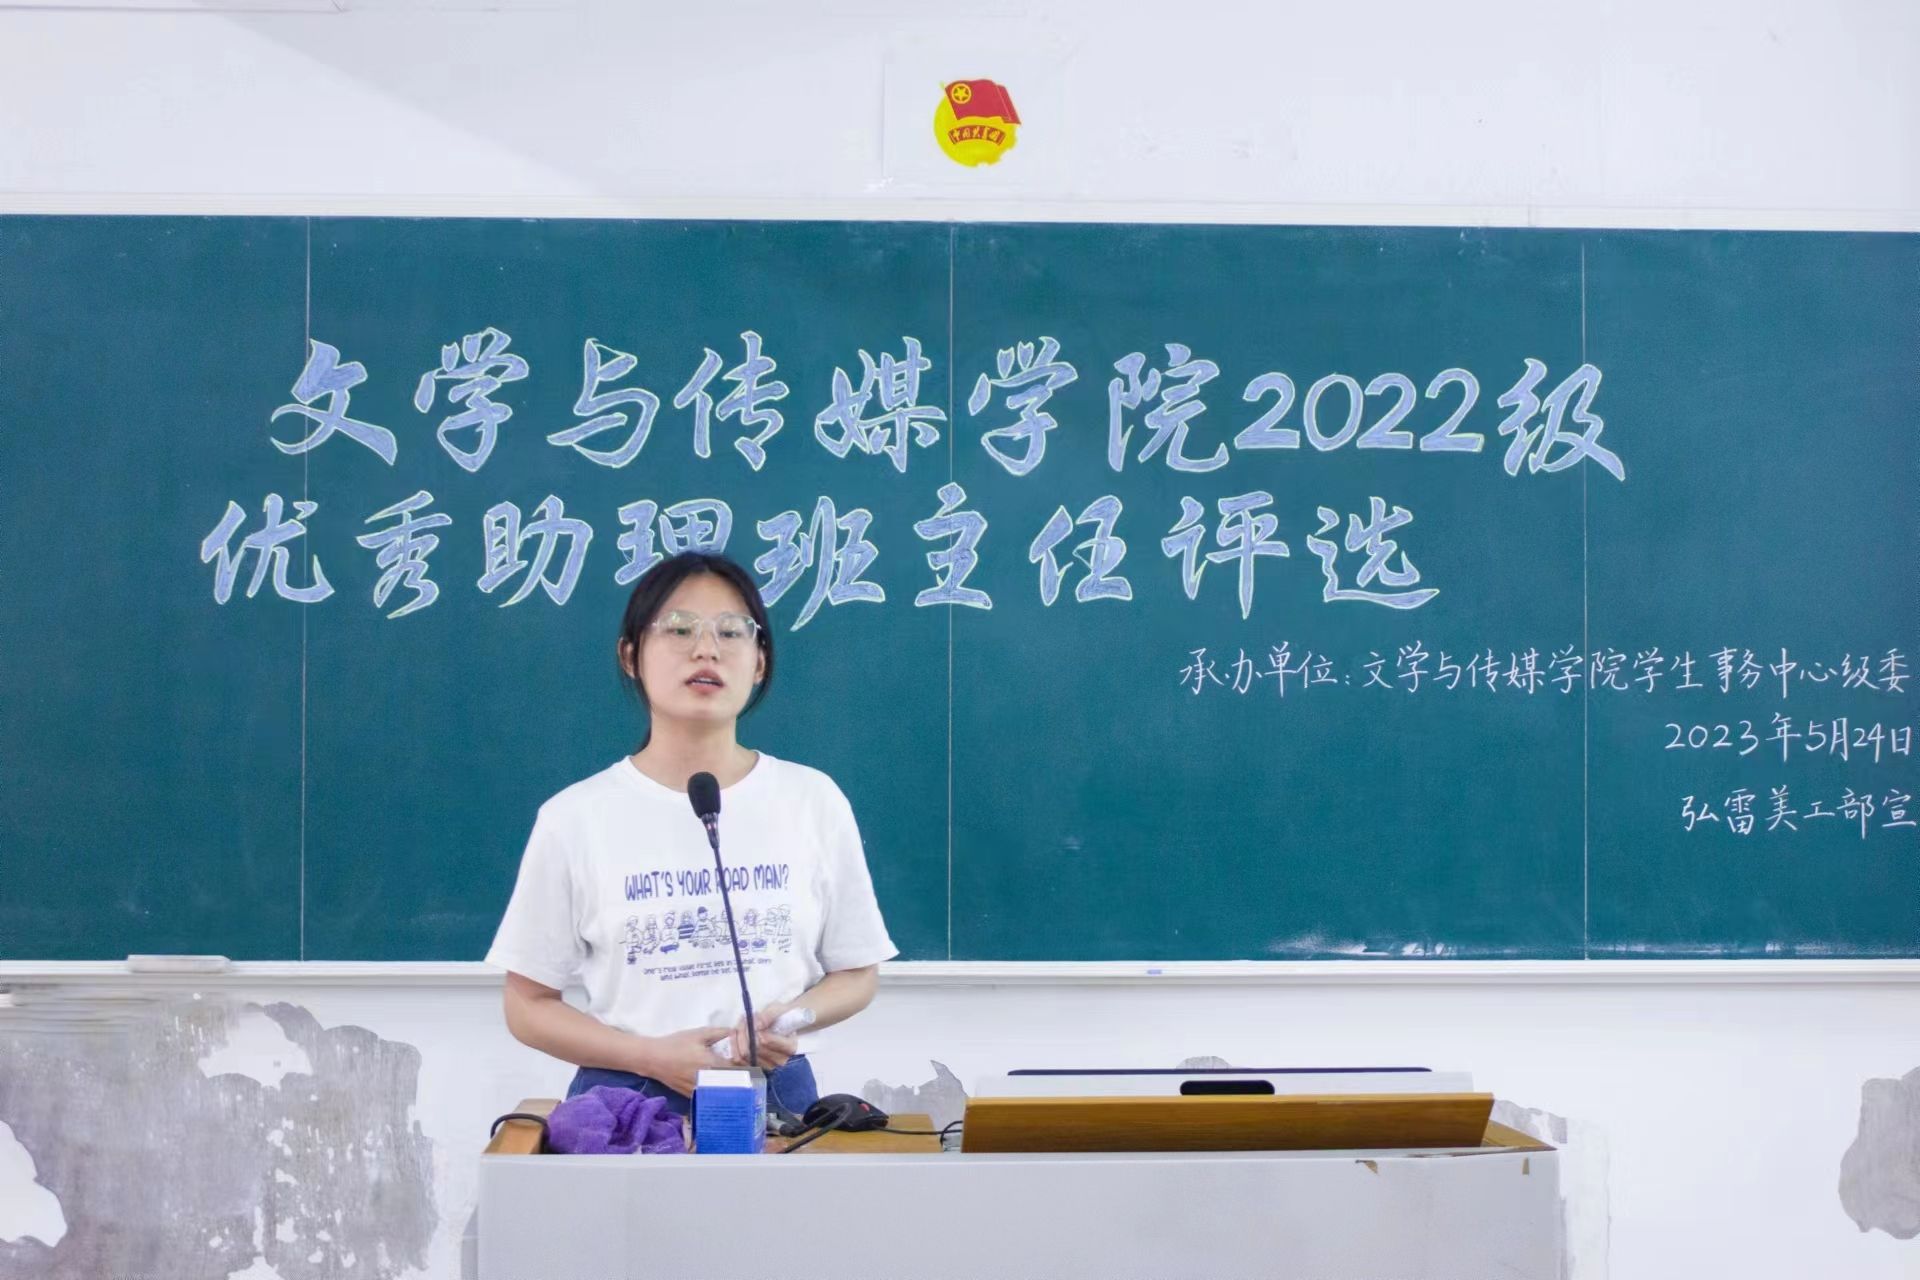 中国共青团
文学与传媒学院2022级
优秀助理班主任评选
承办单位:文学与传媒学院学生事务中心级委
2023年5月24日
弘雷美工部宣
WHAT'S YOUR ROAD MAN?